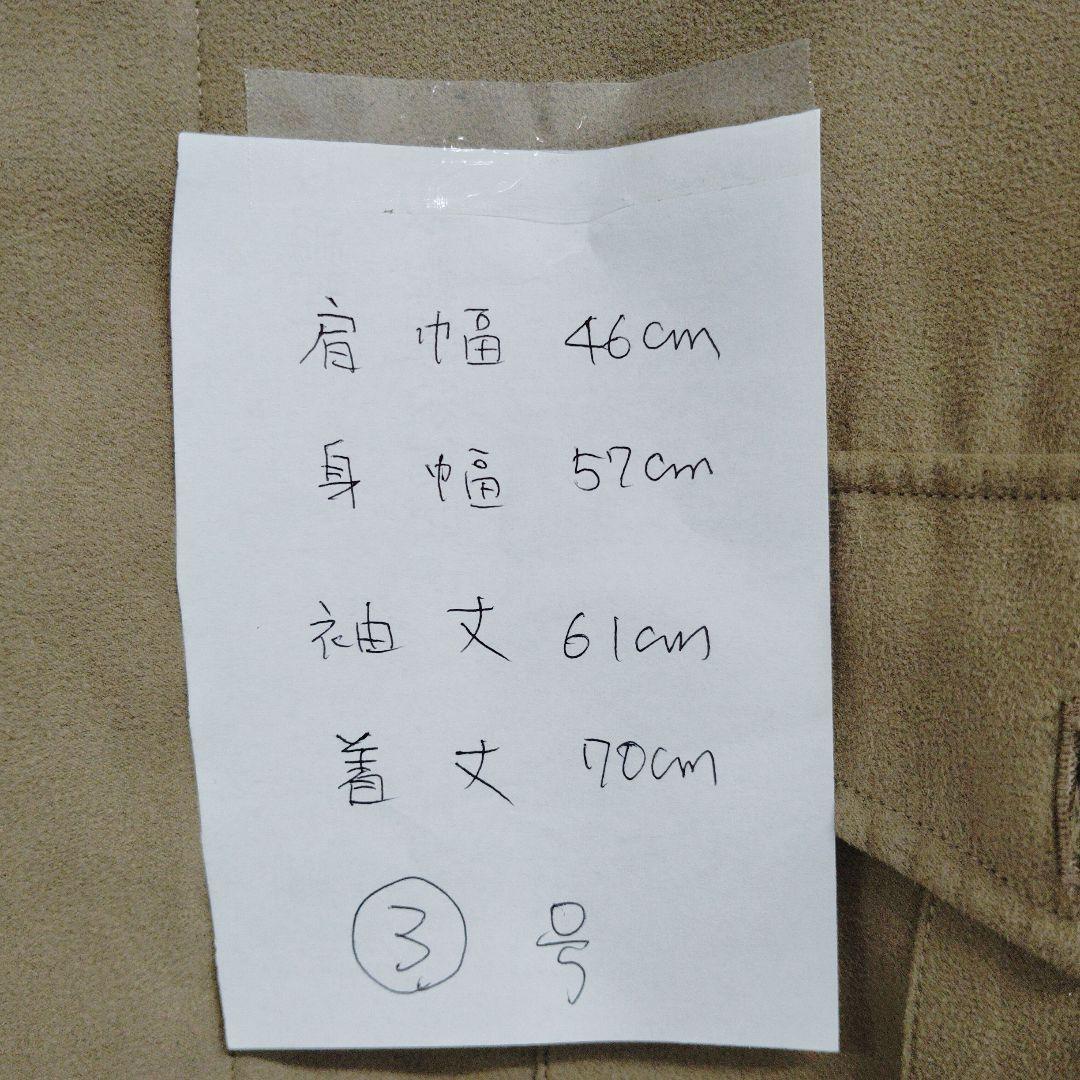 肩幅 46cm
身幅 57cm
袖丈 61cm
着丈 70cm
③号